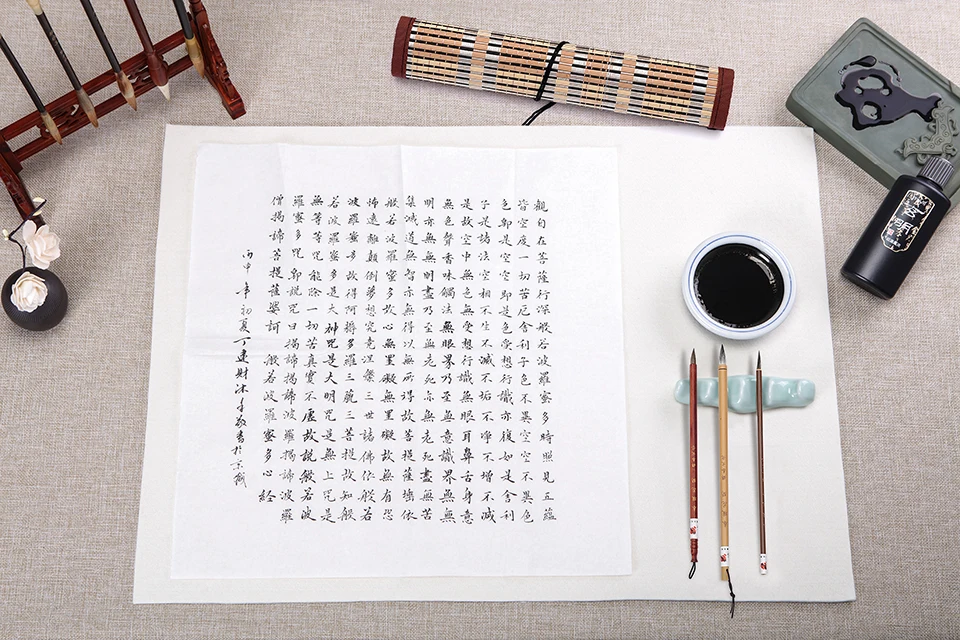 觀自在菩薩行深般若波羅蜜多時照見五蘊
皆空度一切苦厄舍利子色不異空空不異色
色即是空空即是色受想行識亦復如是舍利
子是諸法空相不生不滅不垢不淨不增不減
是故空中無色無受想行識無眼耳鼻舌身意
無色聲香味觸法無眼界乃至無意識界無無
明亦無無明盡乃至無老死亦無老死盡無苦
集滅道無智亦無得以無所得故菩提薩埵依
般若波羅蜜多故心無罣礙無罣礙故無有恐
怖遠離顛倒夢想究竟涅槃三世諸佛依般若
波羅蜜多故得阿耨多羅三藐三菩提故知般
若波羅蜜多是大神咒是大明咒是無上咒是
無等等咒能除一切苦真實不虛故說般若波
羅蜜多咒即說咒曰揭諦揭諦波羅揭諦波羅
僧揭諦菩提薩婆訶 般若波羅蜜多心經
丙申年初夏丁建財沐手敬書於京